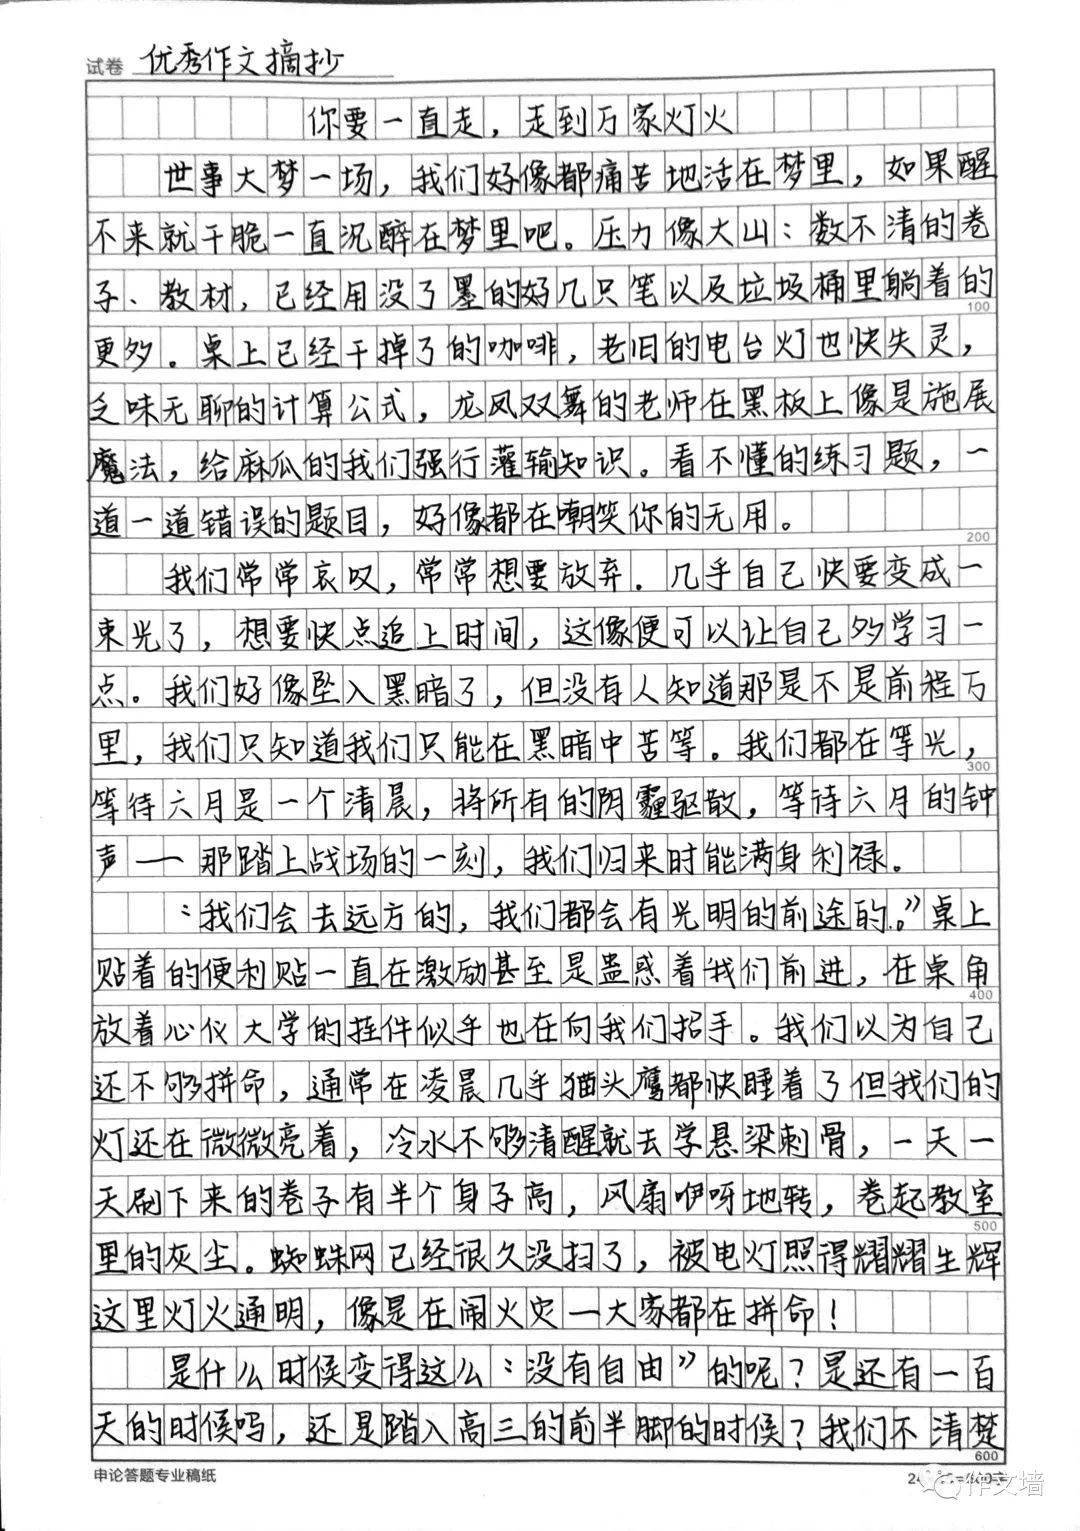 试卷 优秀作文摘抄
你要一直走，走到万家灯火
世事大梦一场，我们好像都痛苦地活在梦里，如果醒
不来就干脆一直沉醉在梦里吧。压力像大山：数不清的卷
子、教材，已经用没了墨的好几只笔以及垃圾桶里躺着的
100
更多。桌上已经干掉了的咖啡，老旧的电台灯也快失灵，
乏味无聊的计算公式，龙凤双舞的老师在黑板上像是施展
魔法，给麻瓜的我们强行灌输知识。看不懂的练习题，一
道一道错误的题目，好像都在嘲笑你的无用。
200
我们常常哀叹，常常想要放弃．几乎自己快要变成一
束光了，想要快点追上时间，这像便可以让自己多学习一
点。我们好像坠入黑暗了，但没有人知道那是不是前程万
里，我们只知道我们只能在黑暗中苦等。我们都在等光，
300
等待六月是一个清晨，将所有的阴霾驱散，等待六月的钟
声——那踏上战场的一刻，我们归来时能满身利禄。
“我们会去远方的，我们都会有光明的前途的。”桌上
贴着的便利贴一直在激励甚至是蛊惑着我们前进，在桌角
400
放着心仪大学的挂件似乎也在向我们招手。我们以为自己
还不够拼命，通常在凌晨几乎猫头鹰都快睡着了但我们的
灯还在微微亮着，冷水不够清醒就去学悬梁刺骨，一天一
天刷下来的卷子有半个身子高，风扇咿呀地转，卷起教室
500
里的灰尘。蜘蛛网已经很久没扫了，被电灯照得耀耀生辉
这里灯火通明，像是在闹火灾—大家都在拼命！
是什么时候变得这么“没有自由”的呢？是还有一百
天的时候吗，还是踏入高三的前半脚的时候？我们不清楚
600
申论答题专业稿纸
作文墙